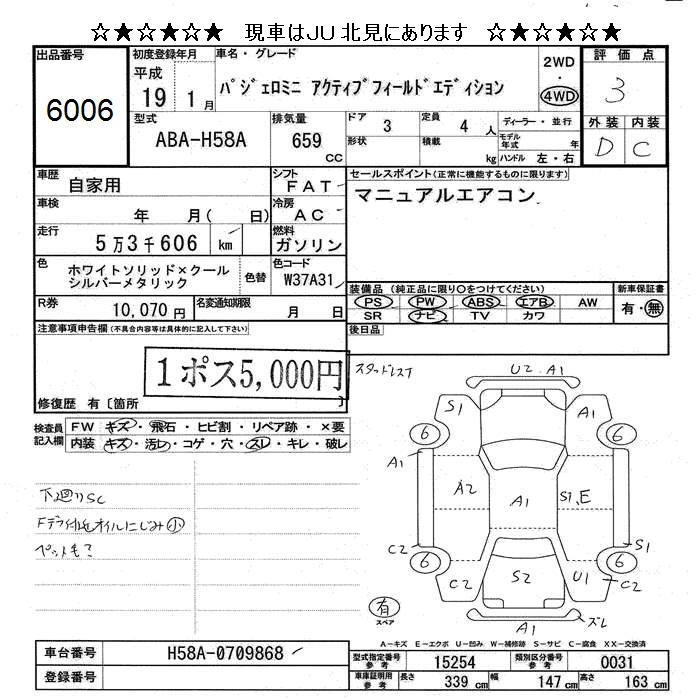 ☆★☆★☆★ 現車はJU北見にあります ☆★☆★☆★
出品番号
6006
初度登録年月
平成
19 1月
車名・グレード
パジェロミニ アクティブフィールドエディション
2WD
・
4WD
評価点
3
外装 内装
D C
型式
ABA-H58A
排気量
659
CC
ドア 3
形状
定員 4 人
積載 kg
ディーラー・並行
モデル年式 年
ハンドル 左・右
車歴 自家用
シフト
FAT
車検 年 月( 日)
冷房
AC
走行 5万3千606 km
燃料
ガソリン
色 ホワイトソリッド×クール
シルバーメタリック
色替
色コード
W37A31
R券 10,070円
名変通知期限 月 日
セールスポイント(正常に機能するものに限ります)
マニュアルエアコン
装備品 (純正品に限り○をつけてください)
PS PW ABS エアB AW
SR ナビ TV カワ
新車保証書
有・無
後日品
注意事項申告欄(不具合内容等は具体的に記入して下さい)
1ポス5,000円
修復歴 有〔箇所 〕
検査員
記入欄
FW キズ・飛石・ヒビ割・リペア跡・×要
内装 キズ・汚レ・コゲ・穴・スレ・キレ・破レ
下廻りSC
Fデフ付近オイルにじみ小
ペット毛
スタッドレス
U2 A1
S1 A1
6 6
A1
A2 A1 S1,E
C2 S1
6 6
C2 S2 U1 C2
有
スペア
A1
ズレ
A-キズ E-エクボ U-凹み W-補修跡 S-サビ C-腐食 XX-交換済
車台番号 H58A-0709868
登録番号
型式指定番号
参考
15254
類別区分番号
参考
0031
車庫証明用
参考
長さ 339 cm
幅 147 cm
高さ 163 cm